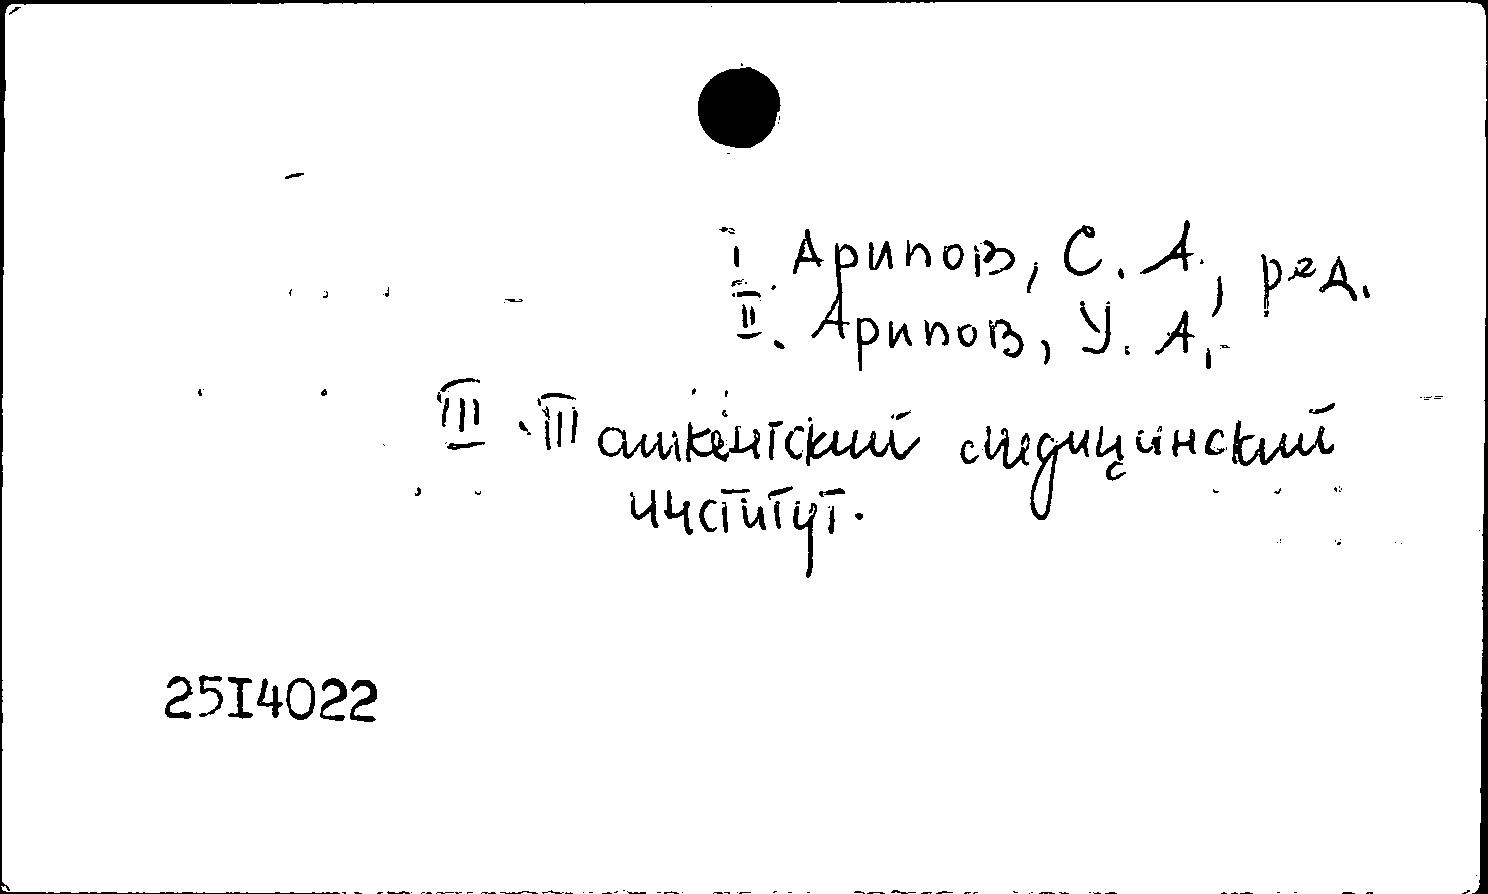 I. Арипов, С. А., ред.
II. Арипов, У. А.,
III. Ташкентский медицинский
институт.
25I4022